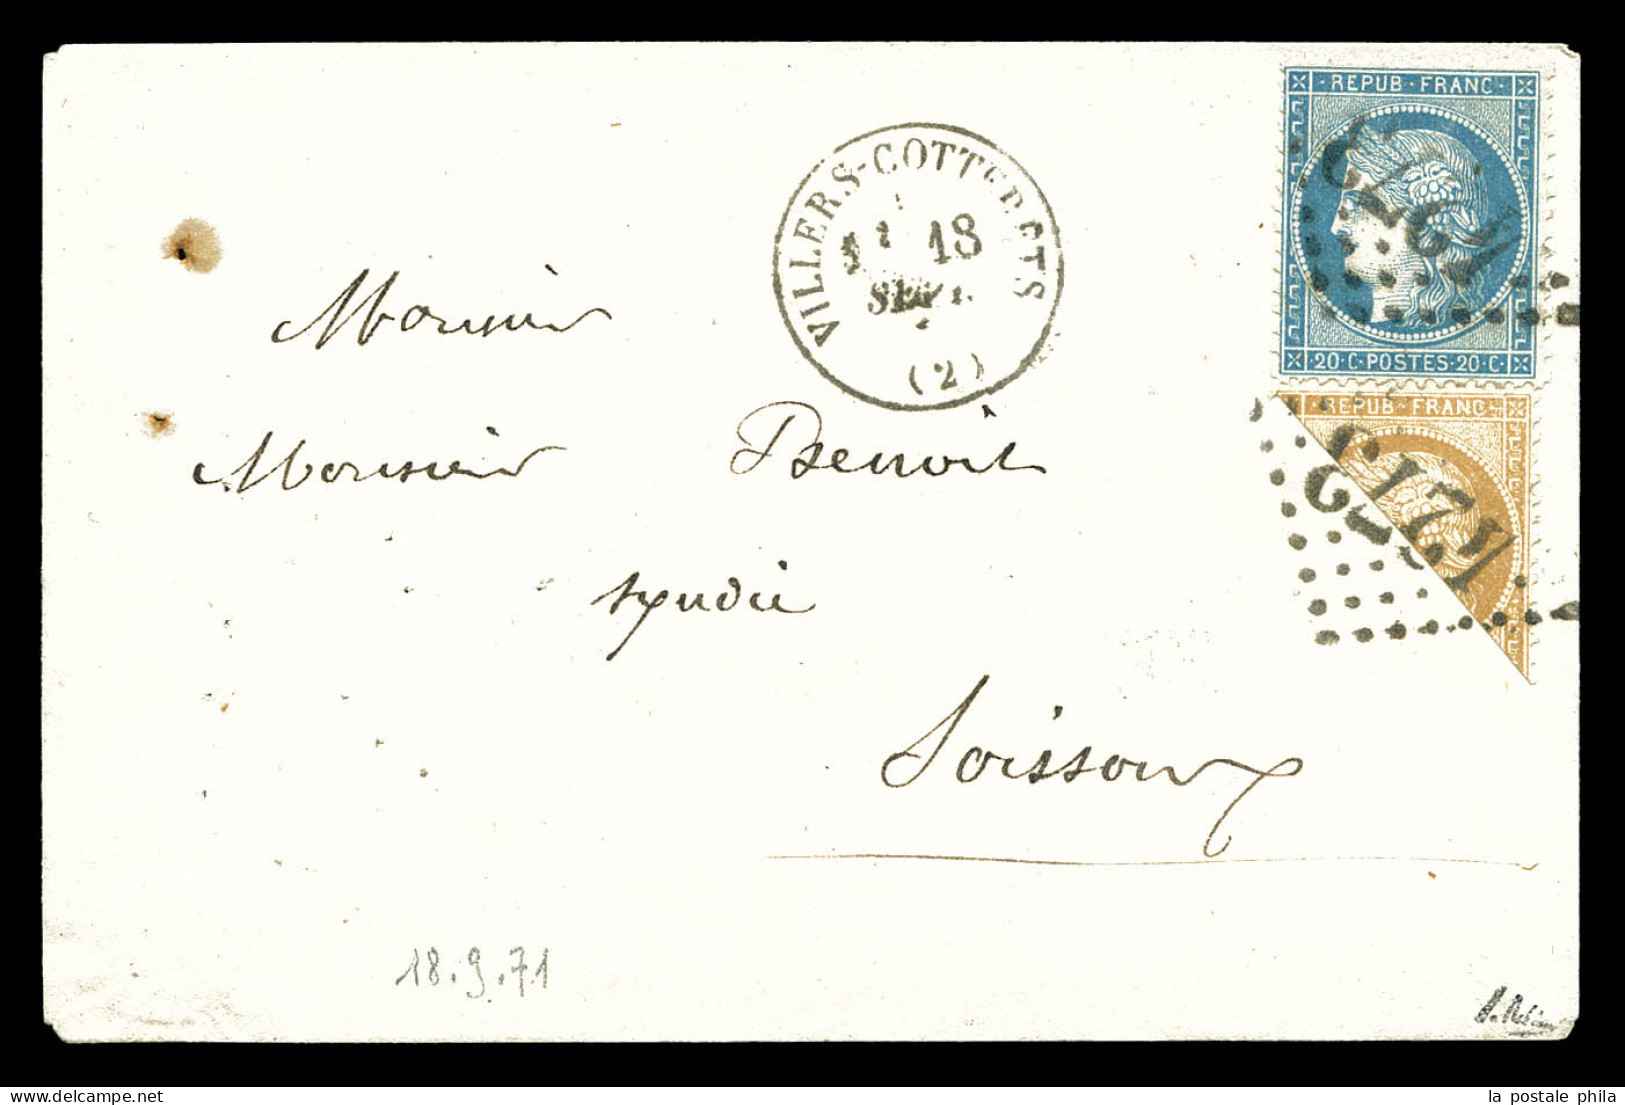 · REPUB · FRANC ·
· 20 · C · POSTES · 20 · C ·
REPUB · FRANC
VILLERS-COTTERETS
18
SEPT.
(2)
Monsieur
Monsieur Benoit
syndic
Soissons
18.9.71
la postale phila